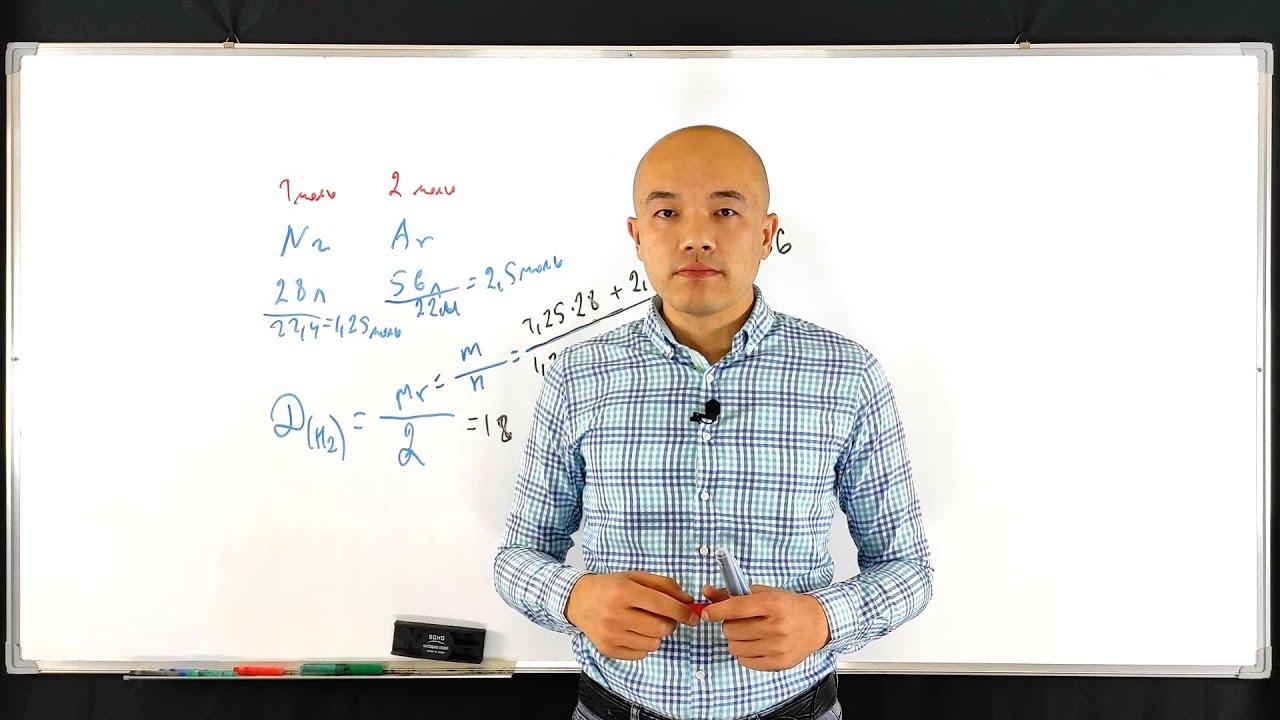 1 моль 2 моль
N₂ Ar
28л/22,4=1,25моль 56л/22,4=2,5моль
D(H₂) = Mr/2 =18
Mr= m/n = 1,25·28 + 2, / 1,2 6
BOHO